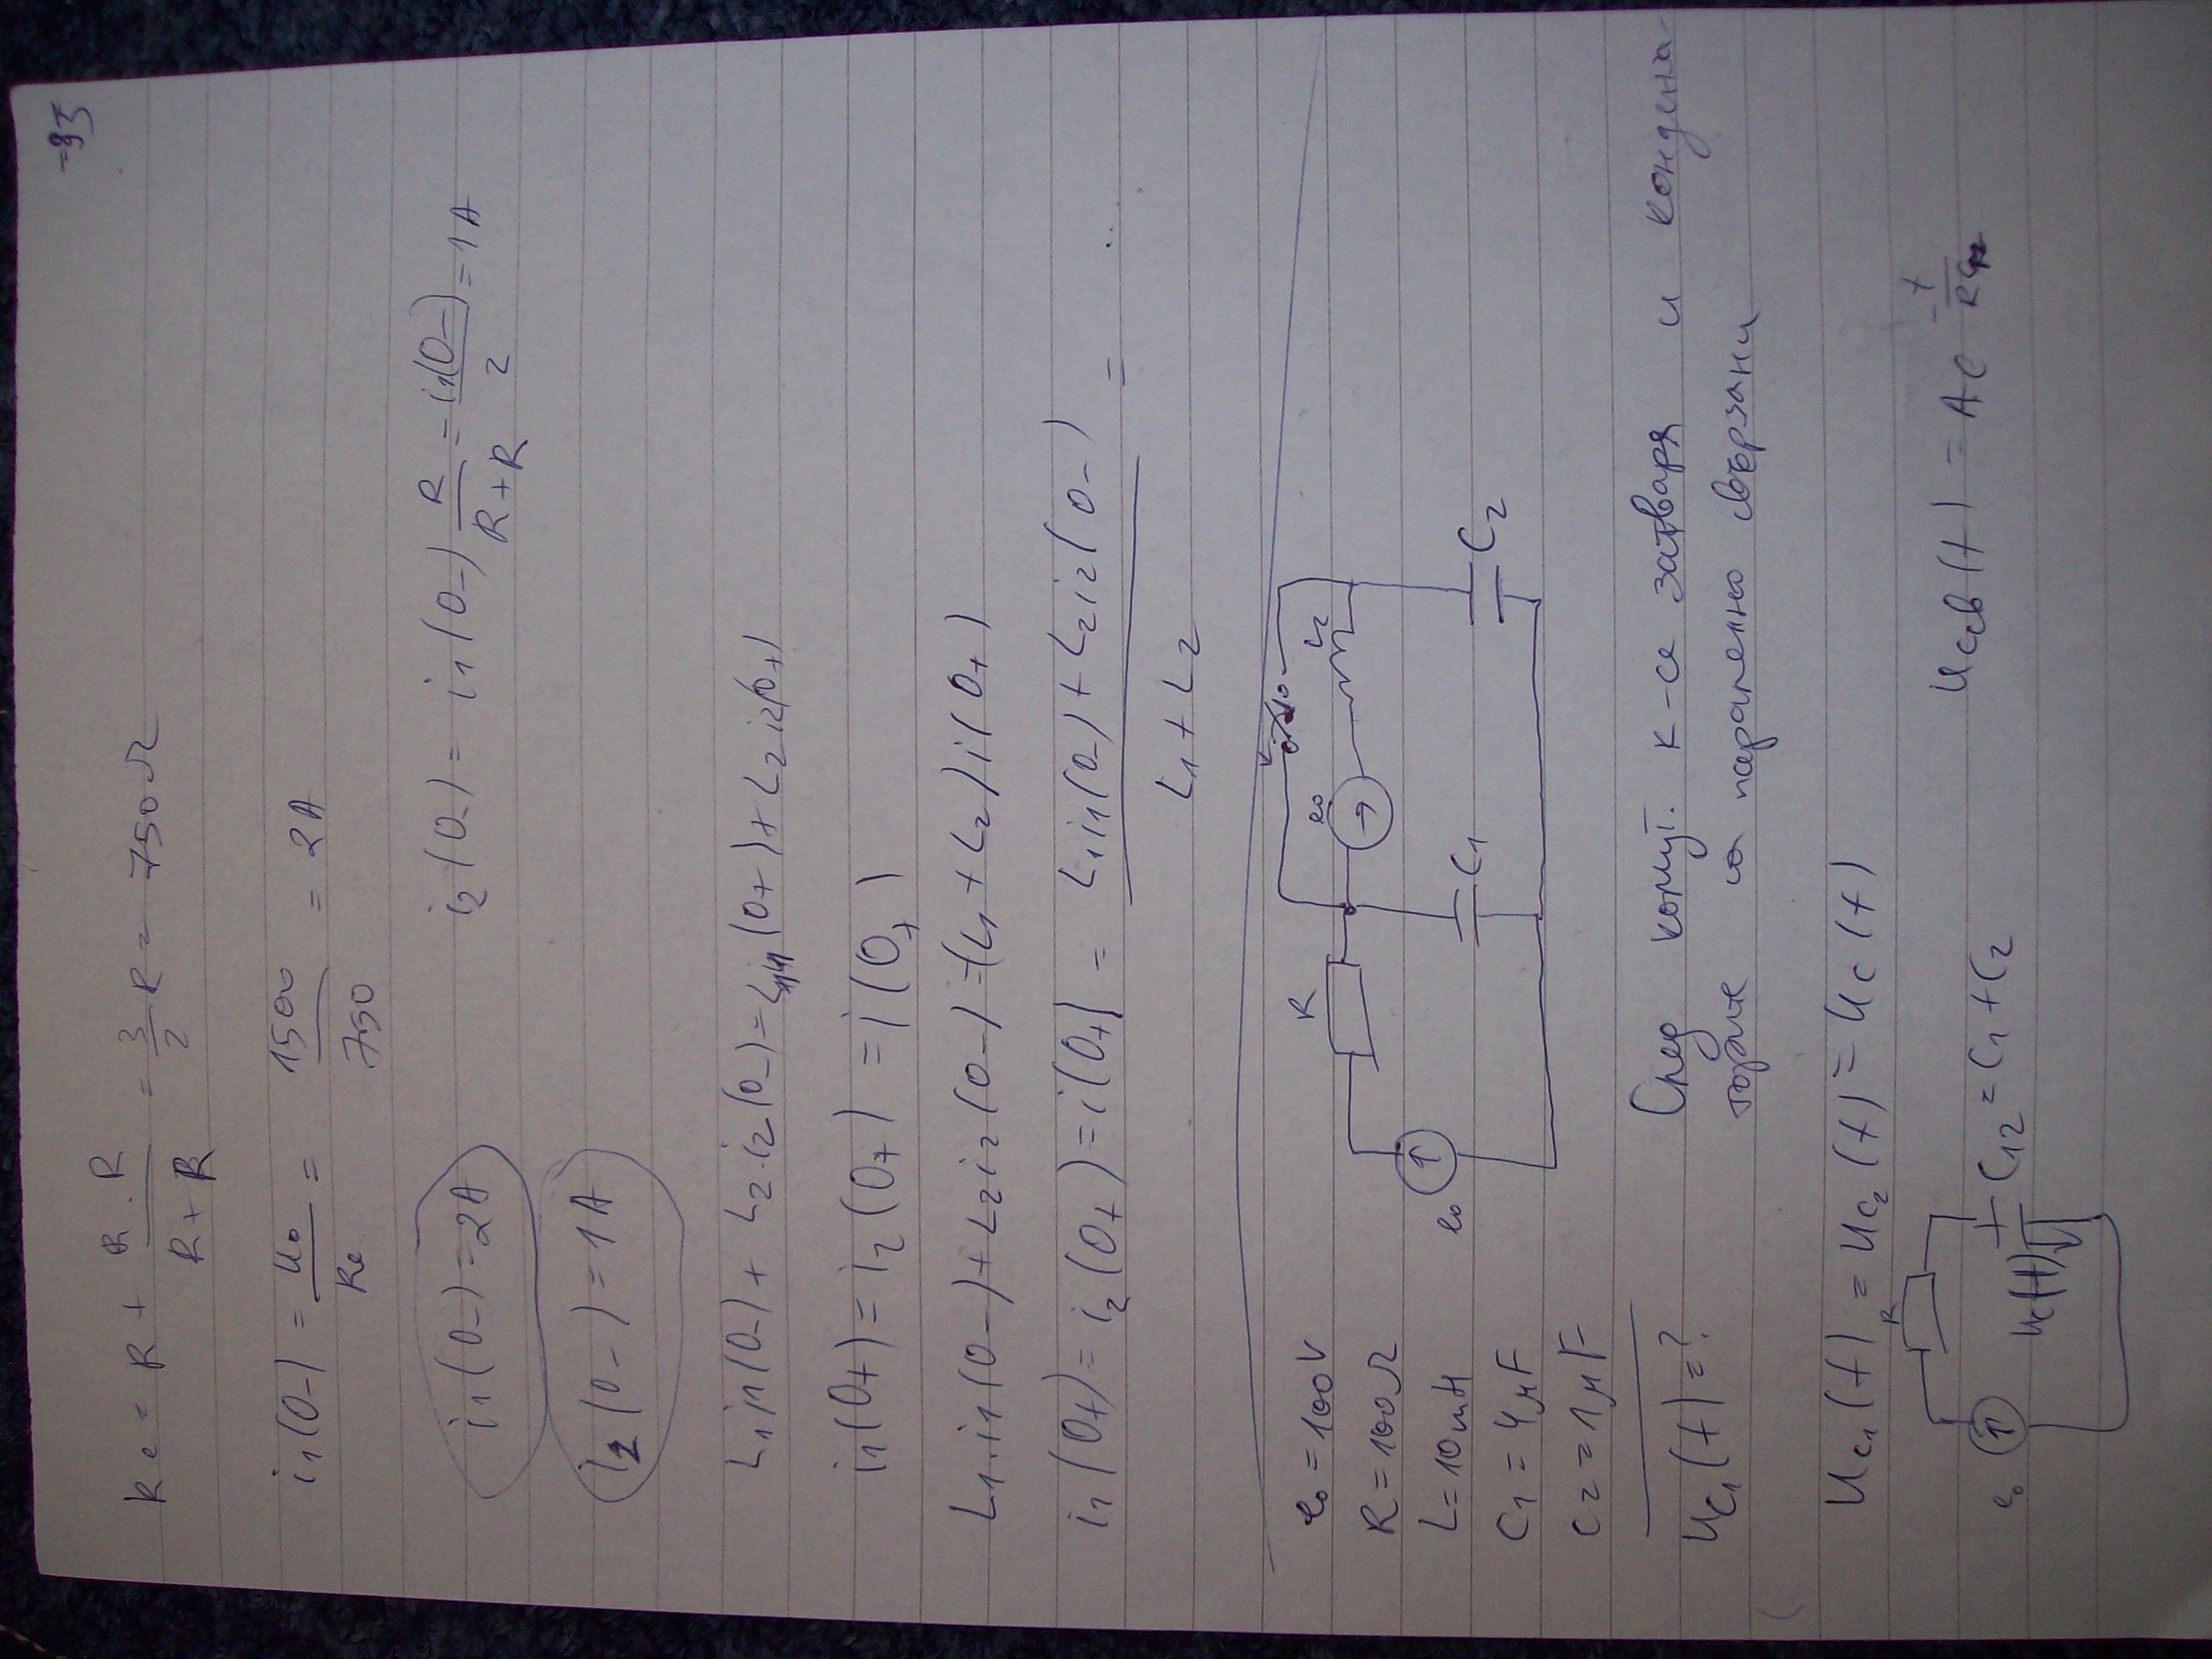 -93-
Re = R + R.R / R+R = 3/2 R = 750Ω
i1(0-) = u0 / Re = 1500 / 750 = 2A
i1(0-) = 2A
i2(0-) = i1(0-) R / R+R = i1(0-) / 2 = 1A
i2(0-) = 1A
L1i1(0-) + L2.i2(0-) = L1i1(0+) + L2i2(0+)
i1(0+) = i2(0+) = i(0+)
L1.i1(0-) + L2i2(0-) = (L1 + L2)i(0+)
i1(0+) = i2(0+) = i(0+) = L1i1(0-) + L2i2(0-) / L1 + L2 = ...
e0 = 100V
R = 100Ω
L = 10mH
C1 = 4μF
C2 = 1μF
uc1(t) = ?
R
K
e0
L2
e0
C1
C2
След комут. к-се затваря и конденза-
са паралелно свързани
uc1(t) = uc2(t) = uc(t)
R
e0
uc(t)
C12 = C1 + C2
ucсв(t) = Ae -t / RC12